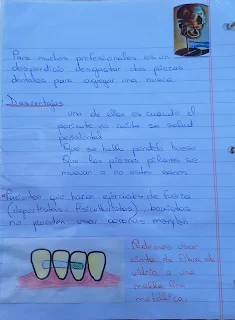 Para muchos profesionales es un
desperdicio desgastar dos piezas
dentales para agregar una nueva
Desventajas
una de ellas es cuando el
paciente no cuida su salud
bucal
Que se halla perdido hueso
Que las piezas pilares se
muevan o no esten sanas
Pacientes que hacen ejercicios de fuerza
(deportistas, fisiculturistas), bruxistas
no pueden usar
Podemos usar
cinta de fibra de
vidrio o una
malla fina
metálica.